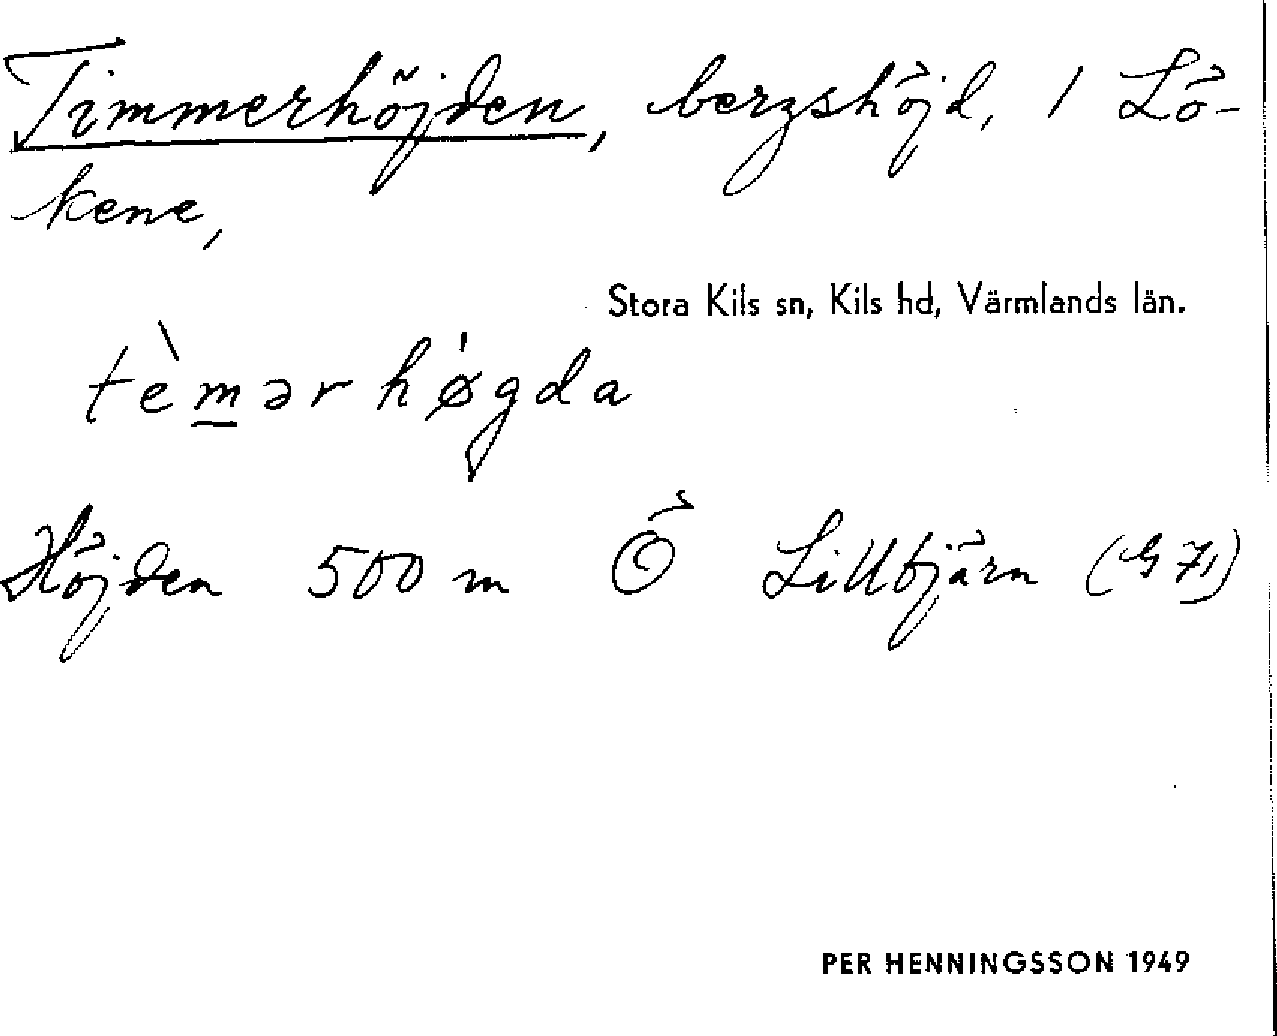 Timmerhöjden, bergshöjd, 1 Lö-
kene,
Stora Kils sn, Kils hd, Värmlands län.
tèmər høgda
Höjden 500 m Ö Lilltjärn (G 7,)
PER HENNINGSSON 1949